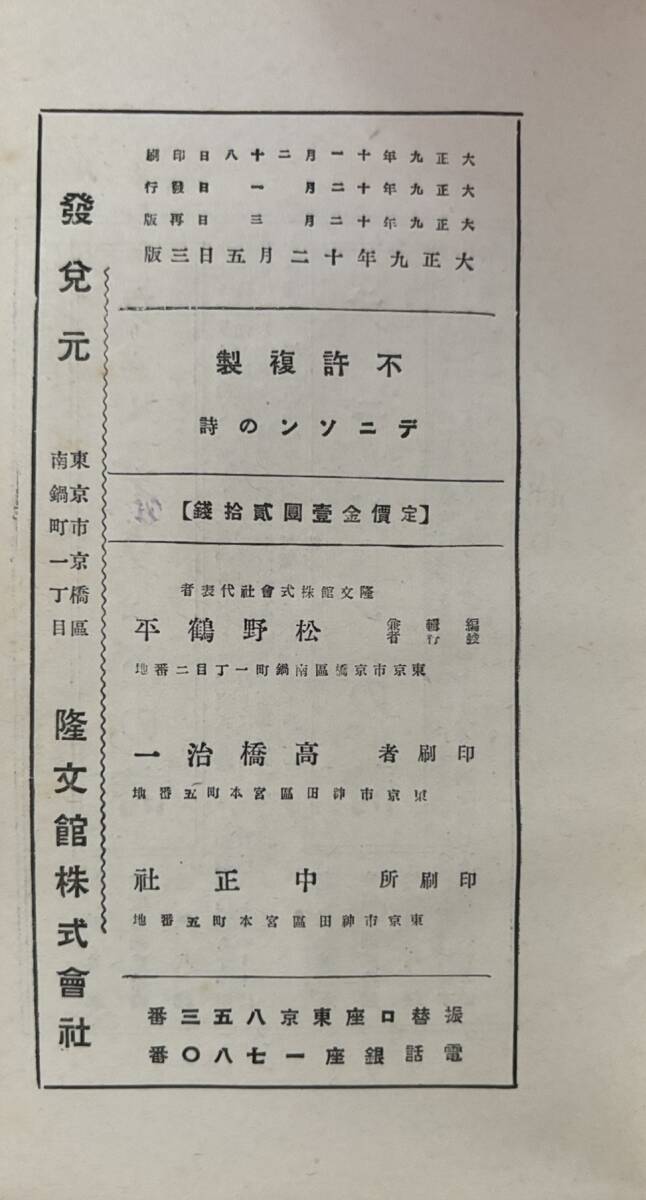 大正九年十一月二十八日印刷
大正九年十二月一日發行
大正九年十二月三日再版
大正九年十二月五日三版
不許複製
デニソンの詩
【定價金壹圓貳拾錢】
隆文館株式會社代表者
編輯兼發行者 松野鶴平
東京市京橋區南鍋町一丁目二番地
印刷者 高橋治一
東京市神田區宮本町五番地
印刷所 中正社
東京市神田區宮本町五番地
振替口座東京八五三番
電話銀座一七八〇番
發兌元
東京市京橋區
南鍋町一丁目
隆文館株式會社